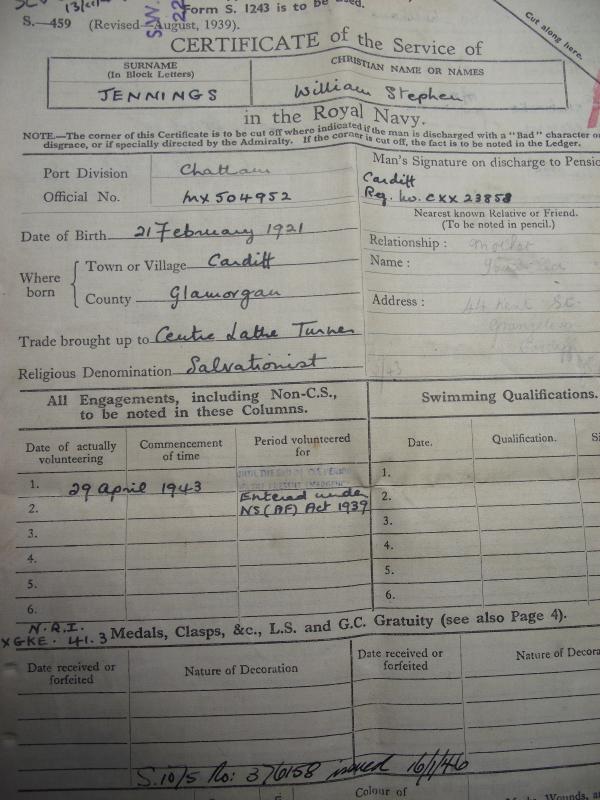 Form S. 1243 is to be used.
S.—459 (Revised—August, 1939).
Cut along here.
CERTIFICATE of the Service of
SURNAME
(In Block Letters)
CHRISTIAN NAME OR NAMES
JENNINGS
William Stephen
in the Royal Navy.
NOTE.—The corner of this Certificate is to be cut off where indicated if the man is discharged with a "Bad" character or
disgrace, or if specially directed by the Admiralty. If the corner is cut off, the fact is to be noted in the Ledger.
Port Division Chatham
Official No. MX 504952
Man's Signature on discharge to Pension
Cardiff
Reg. No. CXX 23858
Nearest known Relative or Friend.
(To be noted in pencil.)
Date of Birth 21 February 1921
Relationship: Mother
Name:
Where born
Town or Village Cardiff
County Glamorgan
Address: 44 Kent St.
Grangetown
Cardiff
Trade brought up to Centre Lathe Turner
Religious Denomination Salvationist
All Engagements, including Non-C.S.,
to be noted in these Columns.
Swimming Qualifications.
Date of actually volunteering
Commencement of time
Period volunteered for
Date.
Qualification.
1. 29 April 1943
UNTIL THE END OF THE PERIOD
OF THE PRESENT EMERGENCY
2. Entered under
NS (AF) Act 1939
3.
4.
5.
6.
1.
2.
3.
4.
5.
6.
N.R.I.
XGKE. 41.3
Medals, Clasps, &c., L.S. and G.C. Gratuity (see also Page 4).
Date received or forfeited
Nature of Decoration
Date received or forfeited
Nature of Decora
S.10/5 No: 376158 issued 16/1/46
Colour of
Wounds,